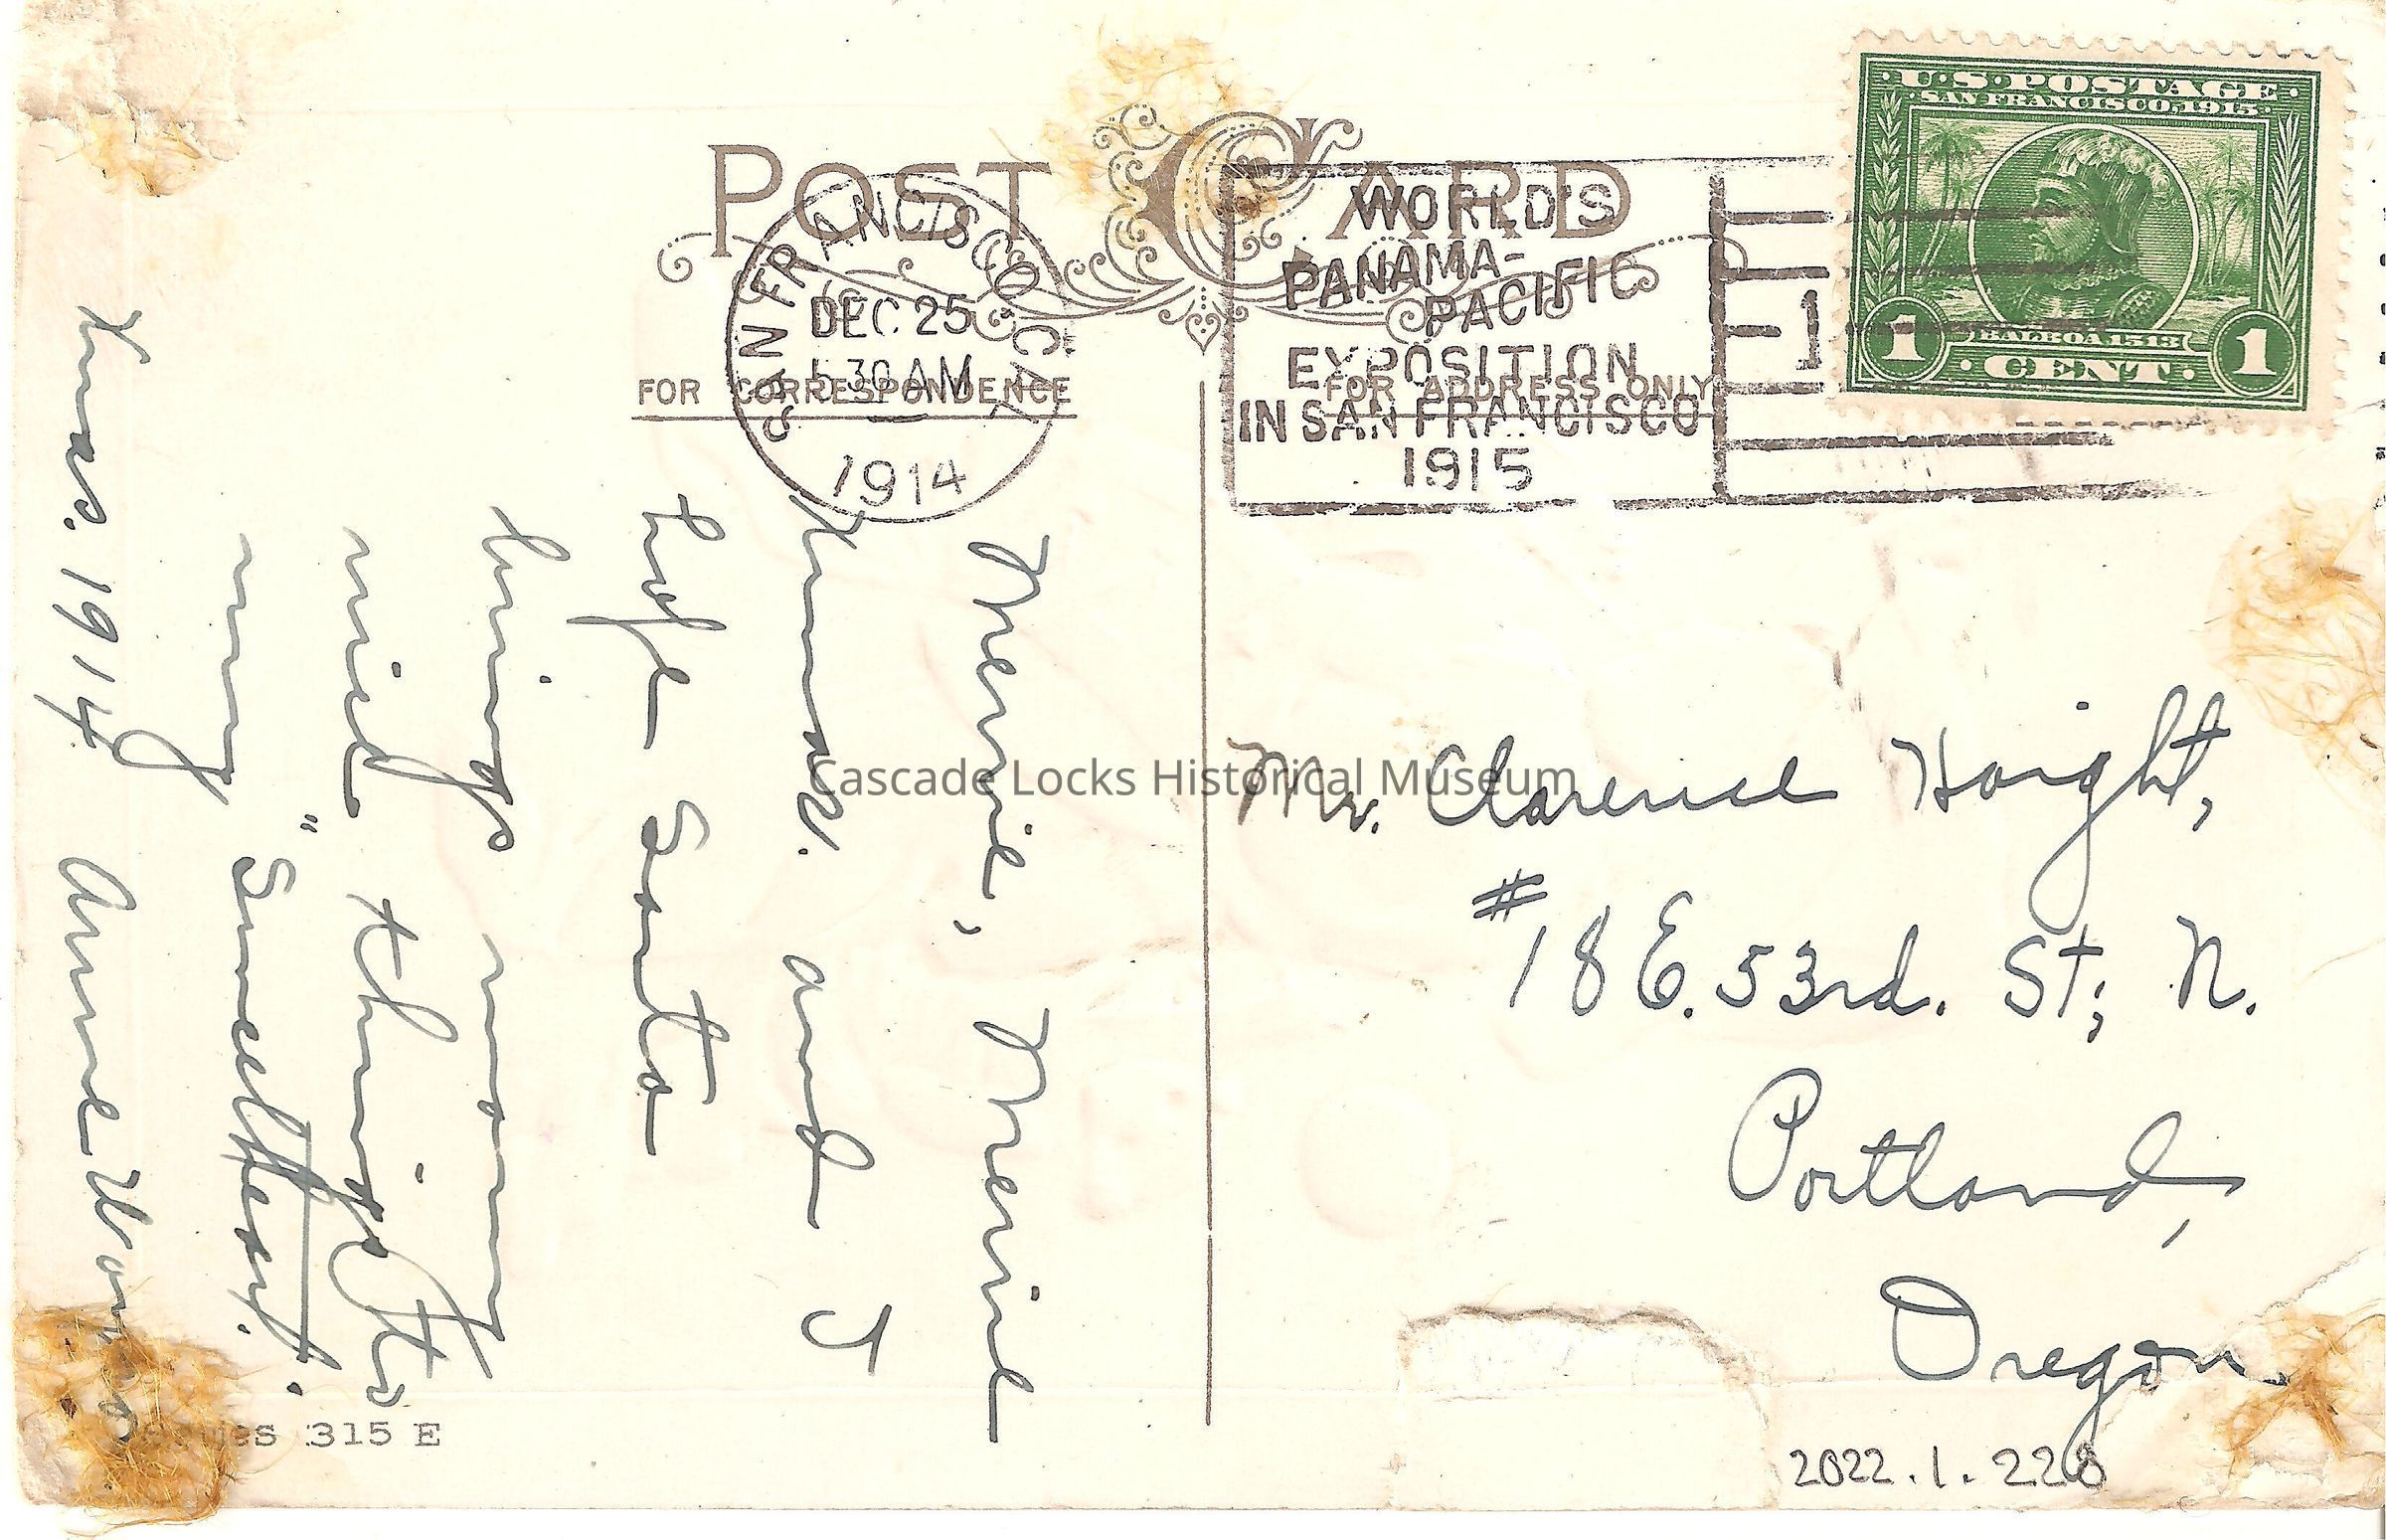 POST CARD
SAN FRANCISCO, CAL.
DEC 25
5 30 AM
1914
WORLD'S
PANAMA-
PACIFIC
EXPOSITION
IN SAN FRANCISCO
1915
1
U·S·POSTAGE
SAN FRANCISCO, 1915
BALBOA 1513
1 CENT 1
FOR CORRESPONDENCE
FOR ADDRESS ONLY
Merrie, Merrie
Xmas. and I
hope Santa
brings many
nice things to
my "Sweetheart".
Xmas. 1914 Anne
Mr. Clarence Haight,
#18 E. 53rd. St; N.
Portland,
Oregon.
315 E
2022.1.228
Cascade Locks Historical Museum